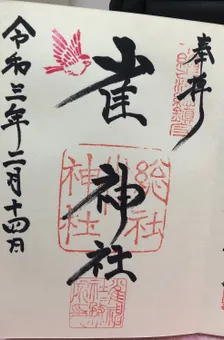 奉拝
雀神社
総社
神社
令和三年二月十四日